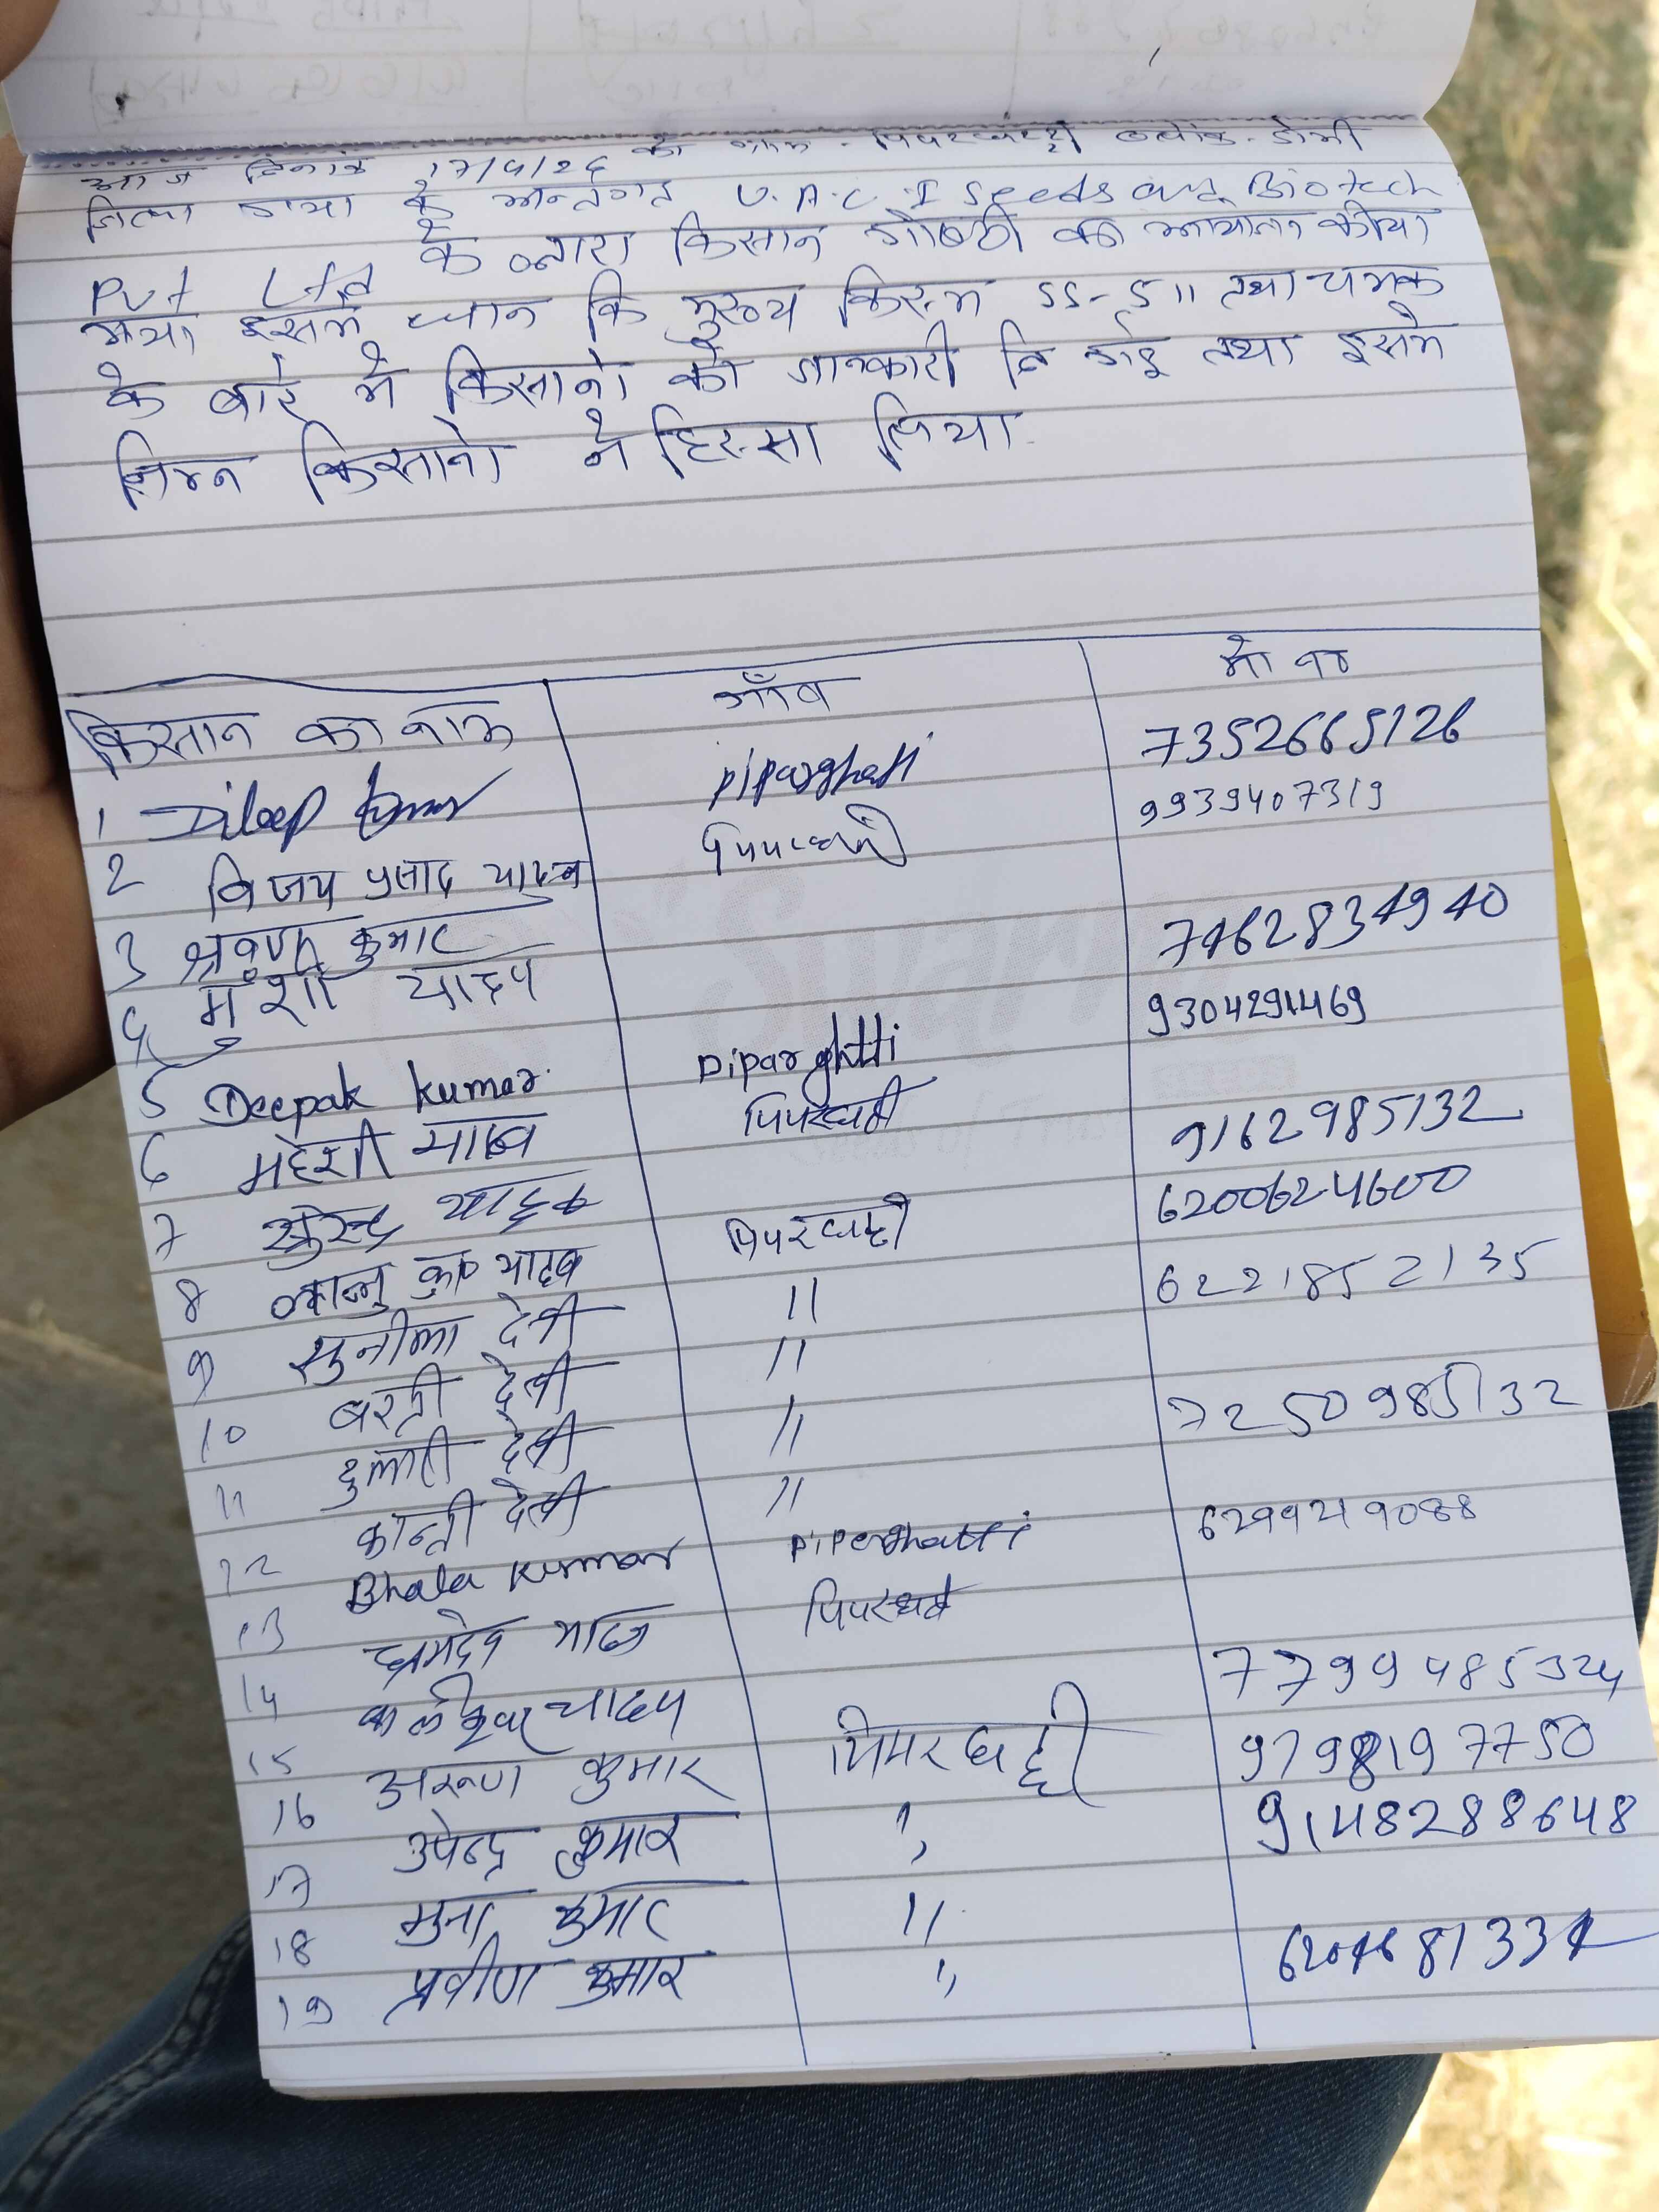 आज दिनांक 17/4/26 को ग्राम - पिपरघट्टी ब्लॉक - डोभी
जिला गया के अन्तर्गत U.A.C.I Seeds and Biotech
Pvt Ltd के द्वारा किसान गोष्ठी का आयोजन कीया
गया इसमे धान कि मुख्य किस्म SS-511 तथा चमक
के बारे मे किसानो को जानकारी दि गई तथा इसमे
निम्न किसानो ने हिस्सा लिया
किसान का नाम गाँव मो नं
1 Dileep Kumar piparghatti 7352665126
2 विजय प्रसाद यादव 9939407319
3 श्रवण कुमार 7462834940
4 मुंशी यादव 9304291469
5 Deepak Kumar. Piparghtti
6 महेशी यादव पिपरघट्टी 9162985132
7 सुरेन्द्र यादव पिपरघट्टी 6200624600
8 कुमार यादव 11 6221852135
9 सुनीला देवी 11
10 बसन्ती देवी 11 7250985132
11 दुलारी देवी 11
12 कान्ती देवी
13 Bhola Kumar Piperghatti 6299219088
14 यादव पिपरघट्टी
15 यादव 7799485324
16 अरुण कुमार पिपरघट्टी 9798197750
17 उपेन्द्र कुमार ,, 9148288648
18 मुन्ना कुमार 11
19 प्रवीण कुमार ,, 6204681331